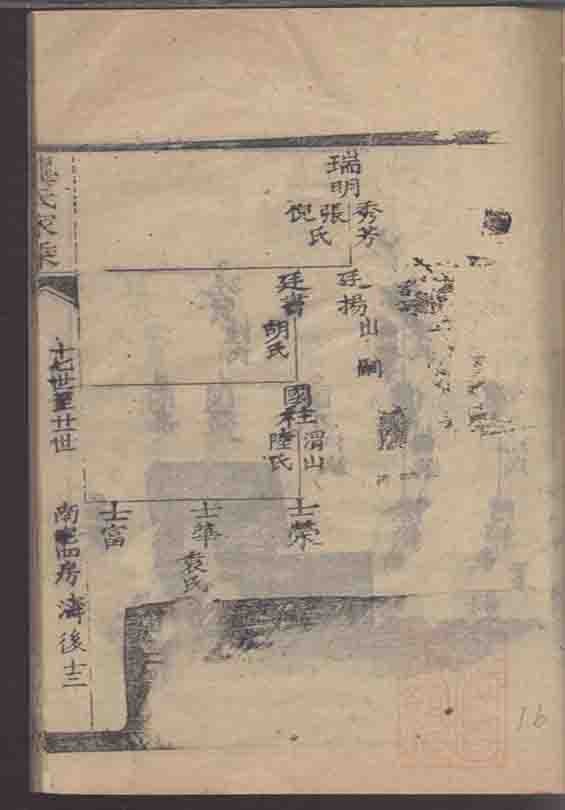 瑞明
秀芳
張
倪
氏
廷揚
出嗣
廷
胡氏
國柱
渭山
陸氏
士榮
士華
袁氏
士富
氏家乘
十七世至廿世
南
四房
濤後十三
16